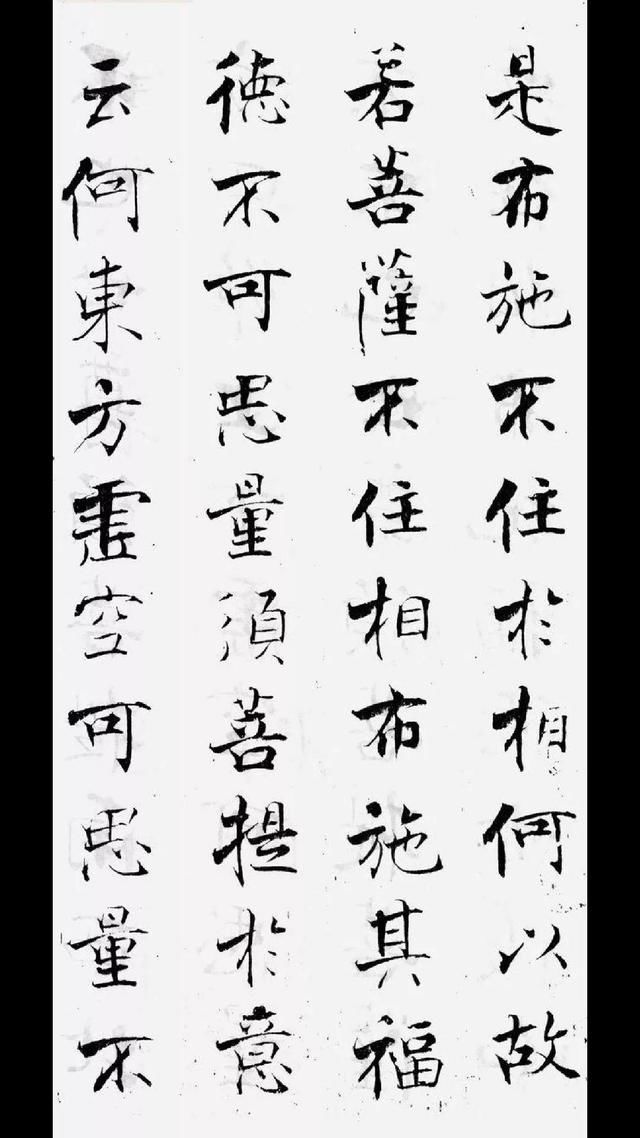 是布施不住於相何以故
若菩薩不住相布施其福
德不可思量須菩提於意
云何東方虛空可思量不